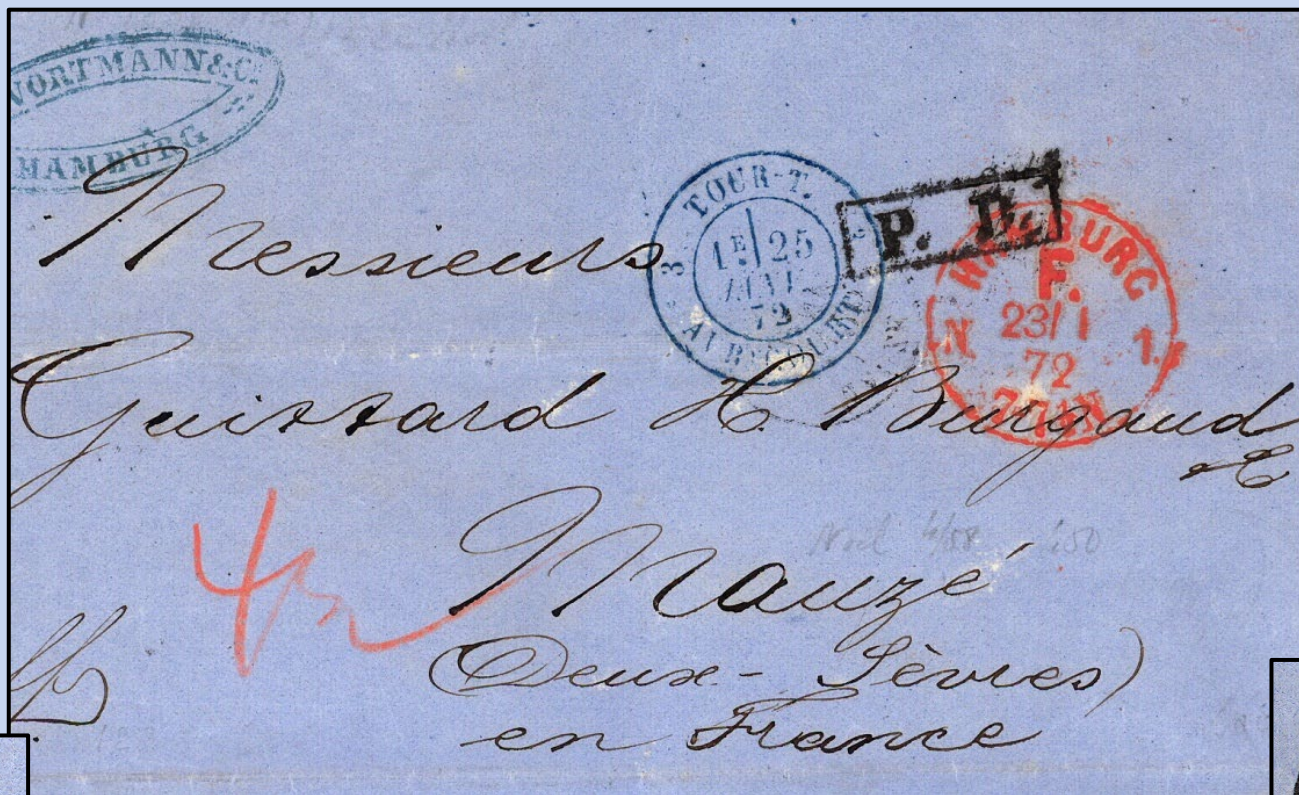 WORTMANN & Co
HAMBURG
3 TOUR-T. 3
1E 25
JANV
72
P. D.
HAMBURG
F.
23/1
72
N 1.
Messieurs
Guissard H. Burgaud
Mauzé
(Deux-Sèvres)
en France